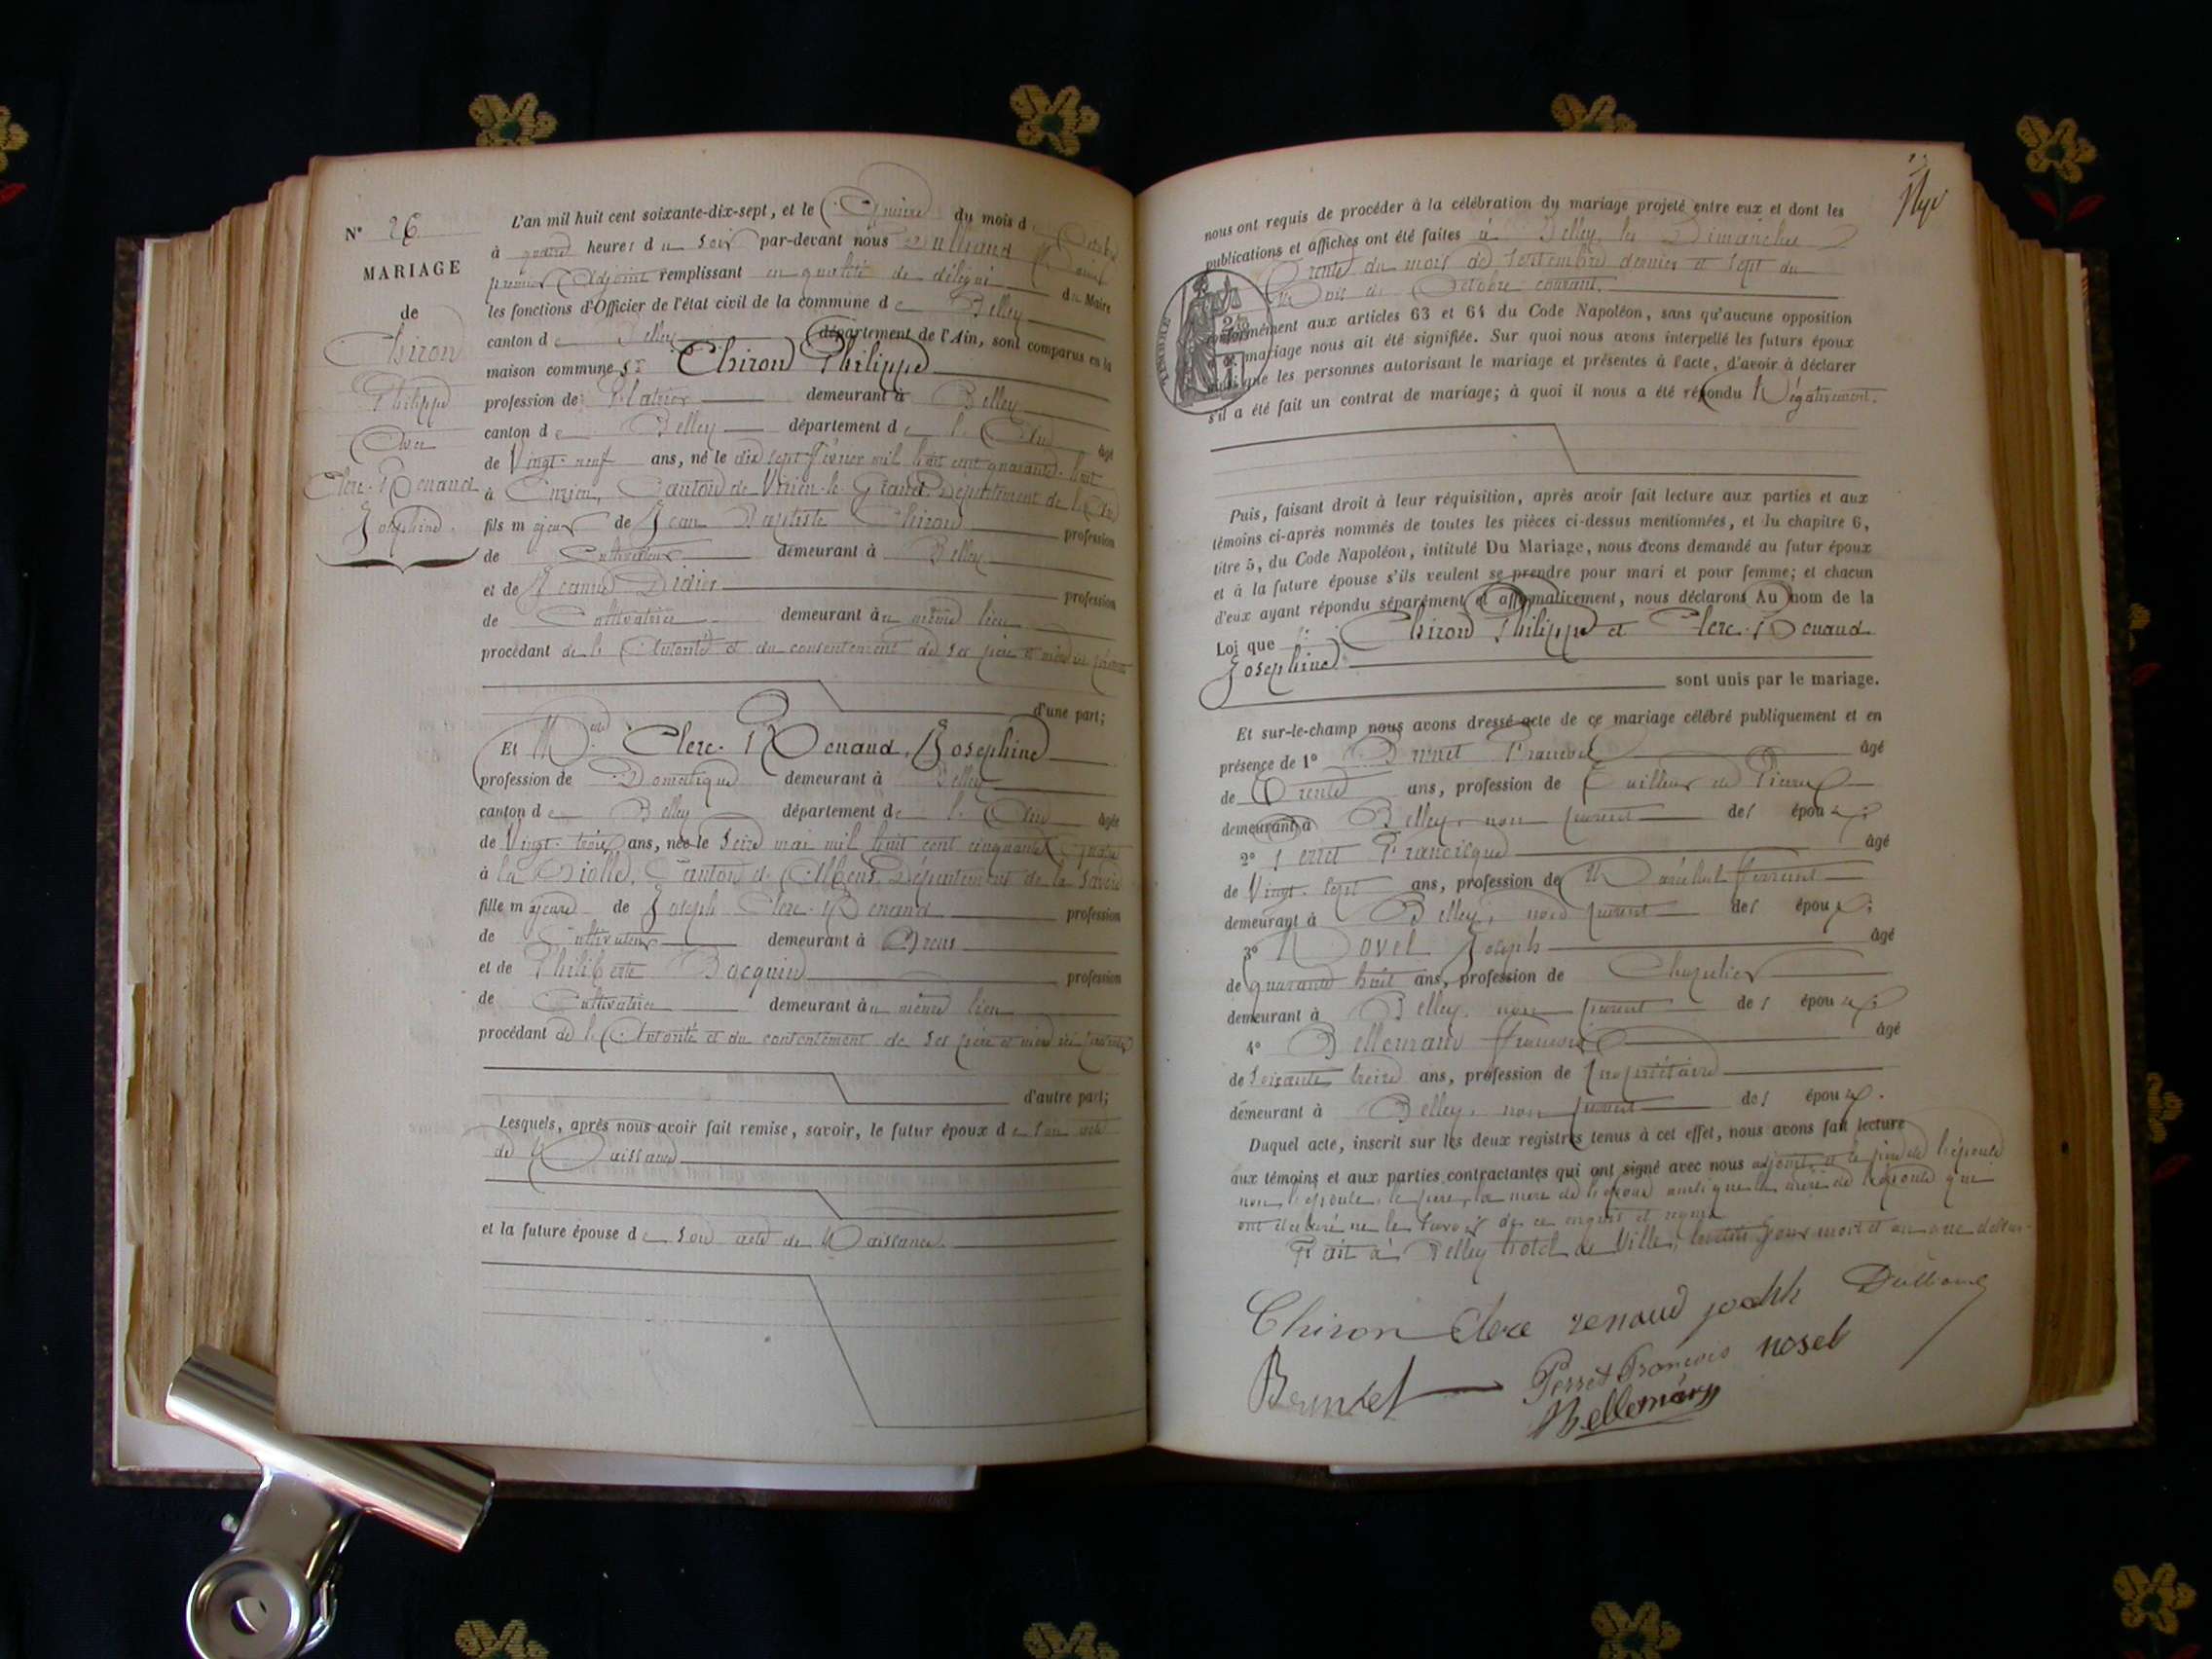 N° 26
MARIAGE
de
Chiron
Philippe
Avec
Clerc-Renaud
Joséphine.
L'an mil huit cent soixante-dix-sept, et le Quinze du mois d'Octobre
à quatre heures du soir par-devant nous
premier Adjoint remplissant en qualité de délégué du Maire
les fonctions d'Officier de l'état civil de la commune de Belley
canton de Belley département de l'Ain, sont comparus en la
maison commune Sr Chiron Philippe
profession de Platrier demeurant à Belley
canton de Belley département de l'Ain âgé
de Vingt-neuf ans, né le dix sept février mil huit cent quarante-huit
à Cuzieu, Canton de Virieu-le-Grand, Département de l'Ain
fils majeur de Jean Baptiste Chiron profession
de Cultivateur demeurant à Belley
et de Jeanne Didier profession
de Cultivatrice demeurant au même lieu
procédant de l'Autorité et du consentement de ses père et mère ici présents
d'une part;
Et Melle Clerc-Renaud, Joséphine
profession de Domestique demeurant à Belley
canton de Belley département de l'Ain âgée
de Vingt-trois ans, née le seize mai mil huit cent cinquante quatre
à la Biolle, Canton d'Albens, Département de la Savoie
fille majeure de Joseph Clerc-Renaud profession
de Cultivateur demeurant à Brens
et de Philiberte Bocquin profession
de Cultivatrice demeurant au même lieu
procédant de l'Autorité et du consentement de ses père et mère ici présents
d'autre part;
Lesquels, après nous avoir fait remise, savoir, le futur époux de son acte
de Naissance
et la future épouse de son acte de Naissance.
nous ont requis de procéder à la célébration du mariage projeté entre eux et dont les
publications et affiches ont été faites à Belley, les Dimanches
Trente du mois de Septembre dernier et sept du
Mois d'Octobre courant.
TIMBRE
conformément aux articles 63 et 64 du Code Napoléon, sans qu'aucune opposition
mariage nous ait été signifiée. Sur quoi nous avons interpellé les futurs époux
ainsi que les personnes autorisant le mariage et présentes à l'acte, d'avoir à déclarer
s'il a été fait un contrat de mariage; à quoi il nous a été répondu Négativement.
Puis, faisant droit à leur réquisition, après avoir fait lecture aux parties et aux
témoins ci-après nommés de toutes les pièces ci-dessus mentionnées, et du chapitre 6,
titre 5, du Code Napoléon, intitulé Du Mariage, nous avons demandé au futur époux
et à la future épouse s'ils veulent se prendre pour mari et pour femme; et chacun
d'eux ayant répondu séparément et affirmativement, nous déclarons Au nom de la
Loi que Chiron Philippe et Clerc-Renaud
Joséphine
sont unis par le mariage.
Et sur-le-champ nous avons dressé acte de ce mariage célébré publiquement et en
présence de 1° Brunet François âgé
de Trente ans, profession de Tailleur de Pierre
demeurant à Belley, non parent des époux;
2° Perret Francisque âgé
de Vingt-sept ans, profession de Maréchal ferrant
demeurant à Belley, non parent des époux;
3° Novel Joseph âgé
de quarante huit ans, profession de Chapelier
demeurant à Belley, non parent des époux;
4° Bellemain François âgé
de Soixante treize ans, profession de propriétaire
demeurant à Belley, non parent des époux.
Duquel acte, inscrit sur les deux registres tenus à cet effet, nous avons fait lecture
aux témoins et aux parties contractantes qui ont signé avec nous adjoint, et le père de l'épouse
non l'épouse, le père, la mère de l'époux ainsi que la mère de l'épouse qui
ont déclaré ne le savoir de ce enquis et requis
Fait à Belley hotel de Ville, les dits jour mois et an que dessus.
Chiron Clerc renaud joseph
Brunet Perret François novel
Bellemain